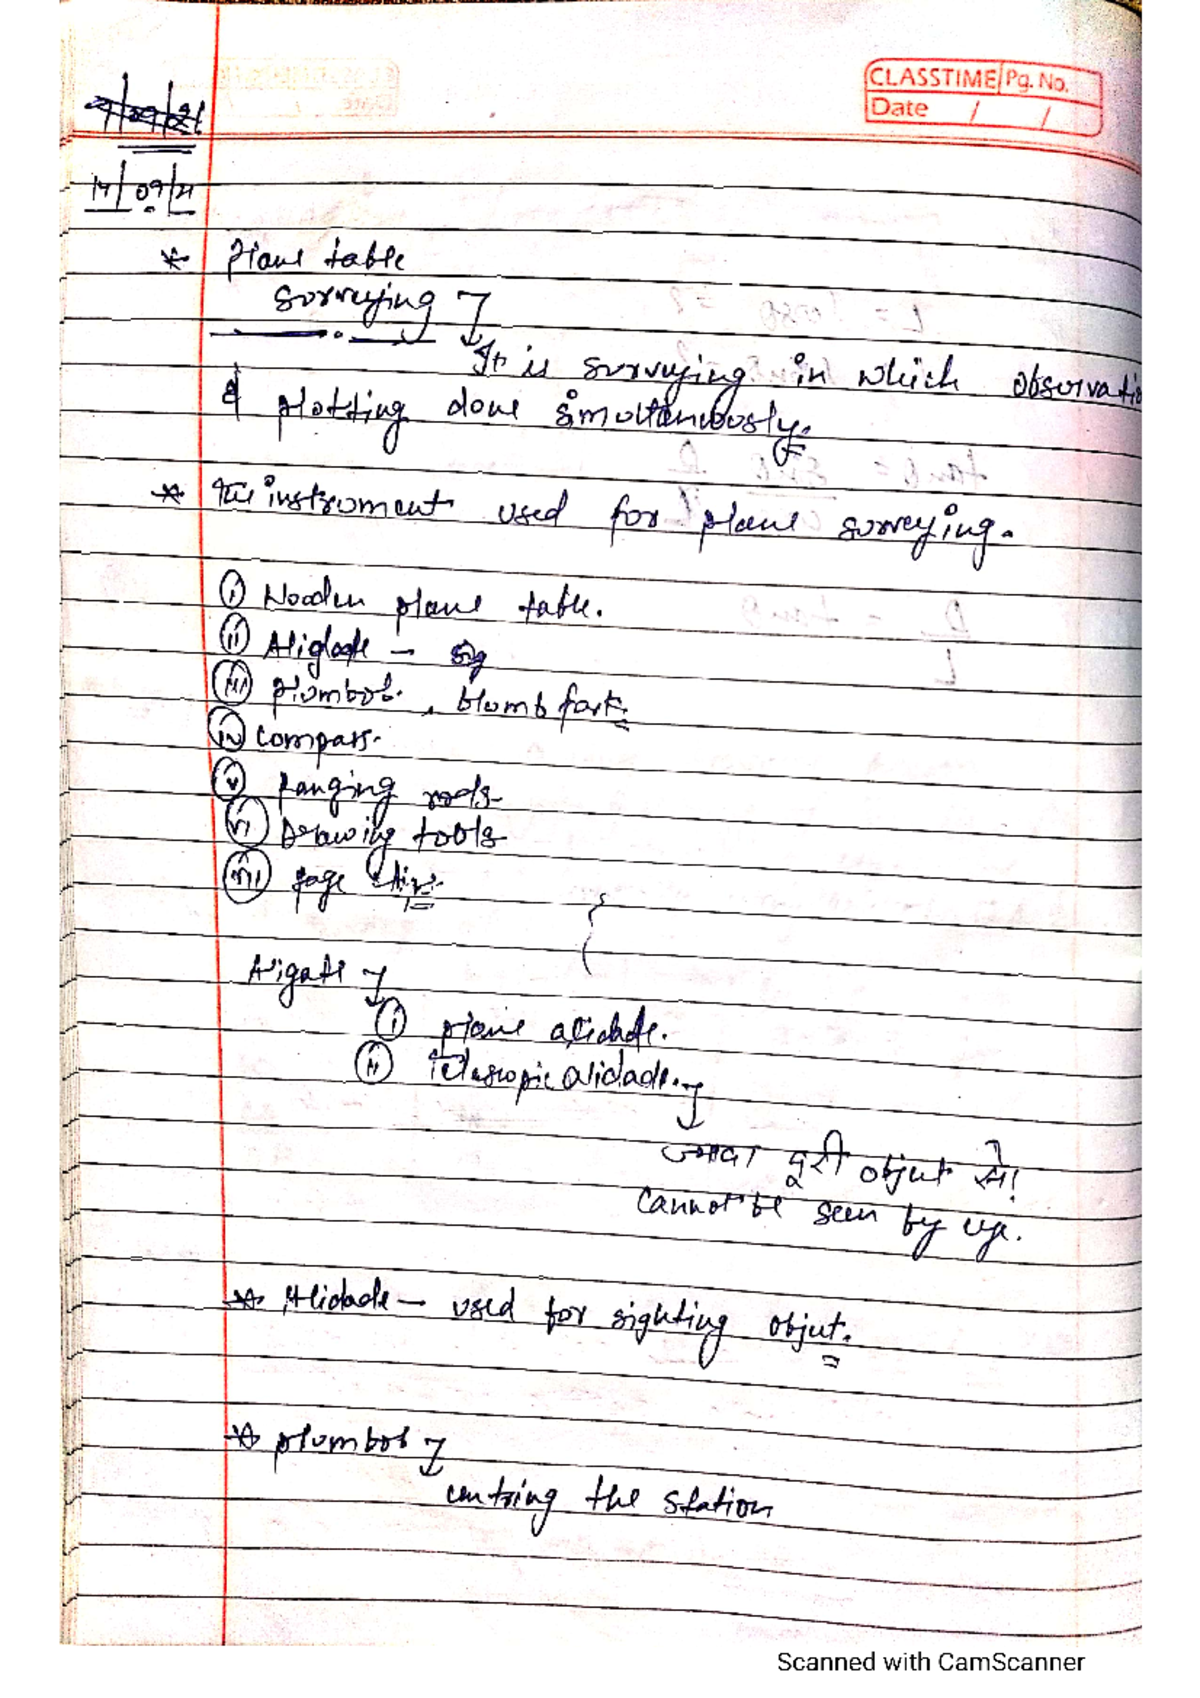 CLASSTIME Pg. No.
Date / /
14/09/21
* Plane table
surveying
It is surveying in which observatio
& plotting done simoultaneously.
* The instroment used for plane surveying.
(i) Wooden plane table.
(ii) Aliglade -
(iii) plumbob. , blumb fark.
(iv) Compass.
(v) Ranging rods
(vi) Drawing tools
(vii) page
Aligate
(i) plane alidade.
(ii) Telescopic alidade.
दूरी object से।
Cannot be seen by eye.
* Alidade - used for sighting object.
* plumbob
centring the station
Scanned with CamScanner